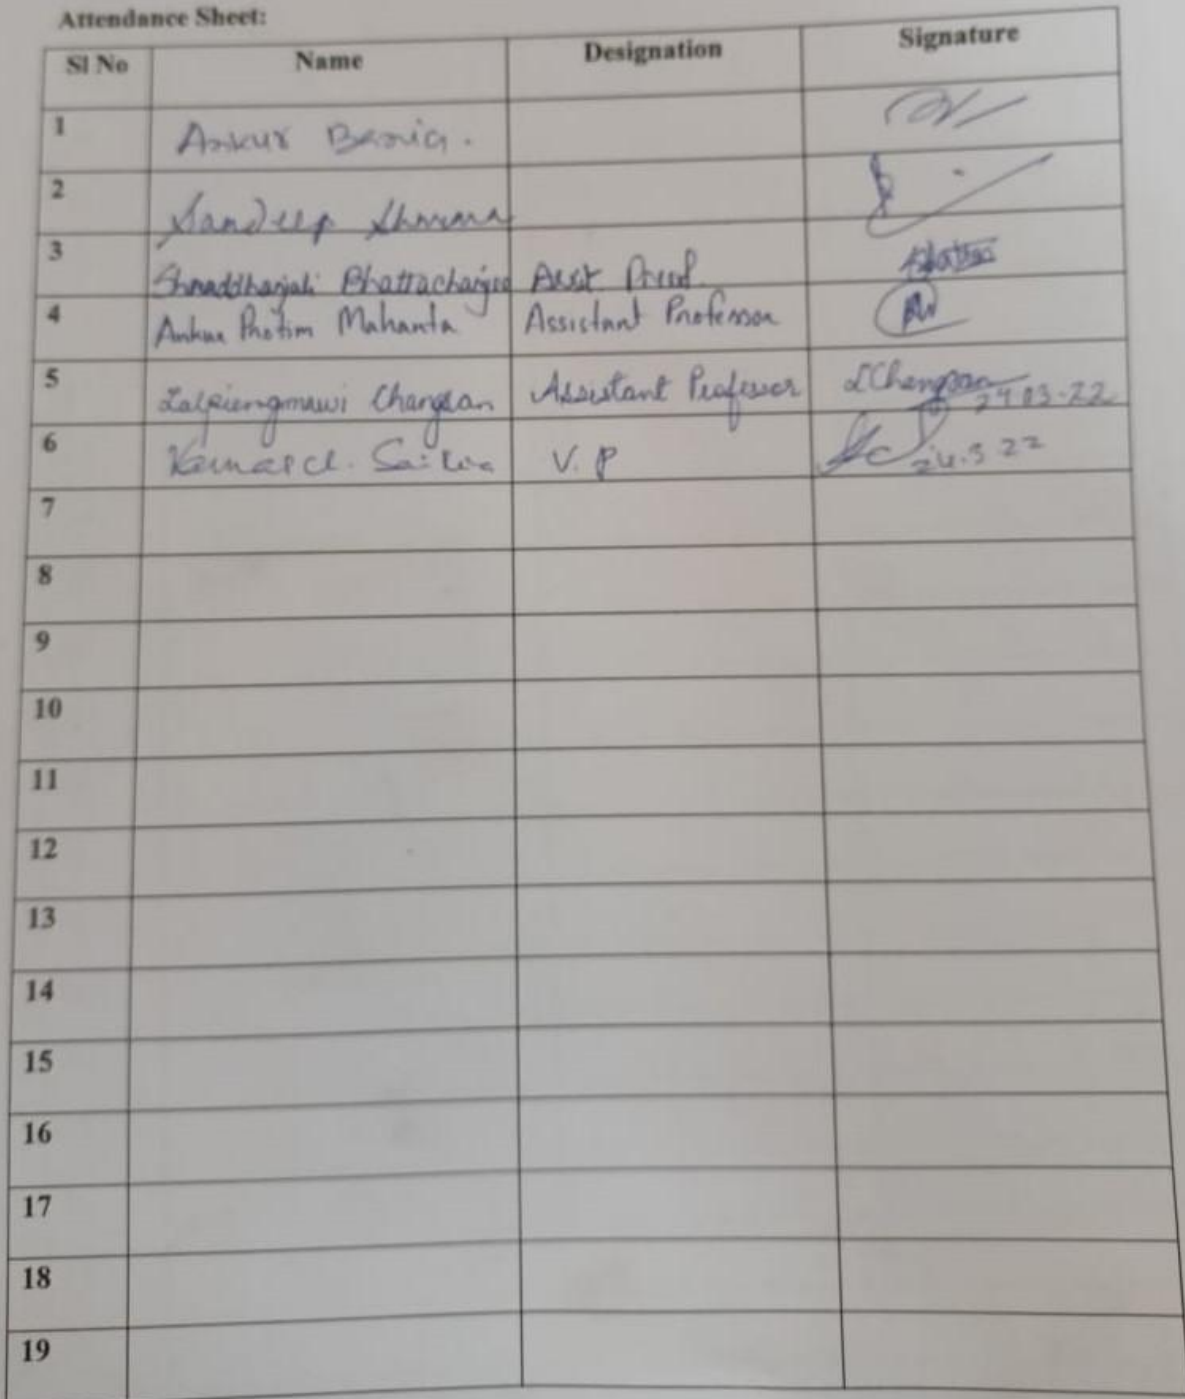 Attendance Sheet:
Sl No Name Designation Signature
1 Ankur Bania.
2 Sandeep Sharma
3 Shraddhanjali Bhattacharjee Asst Prof.
4 Ankur Protim Mahanta Assistant Professor
5 Lalpiengmawi Changsan Assistant Professor LChangsan 24.03.22
6 Kamal ch. Saikia V.P 24.3.22
7
8
9
10
11
12
13
14
15
16
17
18
19